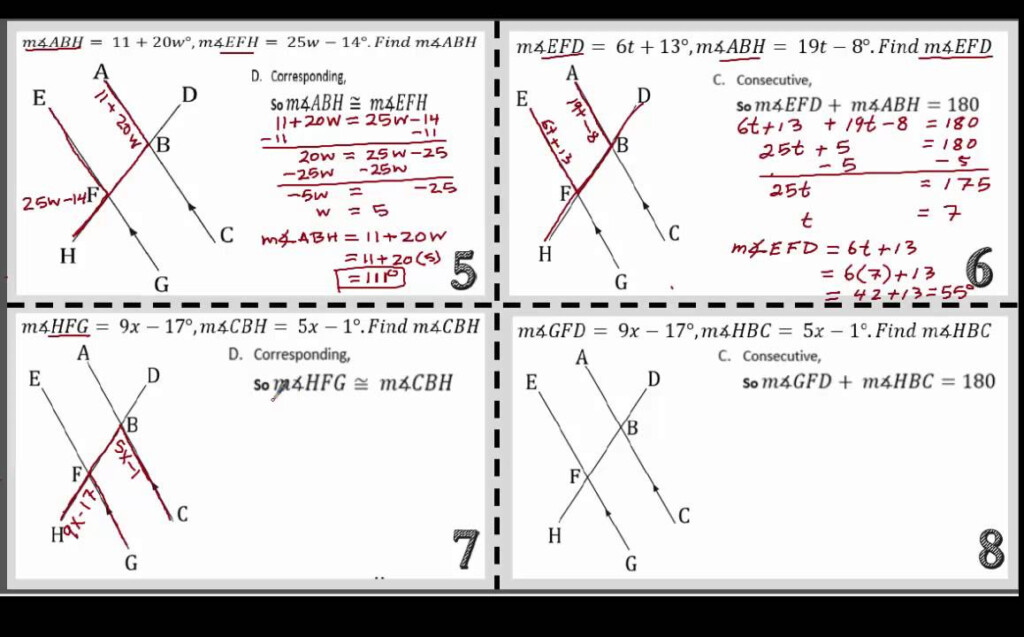 m∡ABH = 11 + 20w°, m∡EFH = 25w − 14°. Find m∡ABH
A
E
D
11+20w
B
25w-14
F
C
H
G
D. Corresponding,
So m∡ABH ≅ m∡EFH
11+20w = 25w-14
-11 -11
20w = 25w-25
-25w -25w
-5w = -25
w = 5
m∡ABH = 11+20w
= 11+20(5)
= 111°
5
m∡EFD = 6t + 13°, m∡ABH = 19t − 8°. Find m∡EFD
A
E
D
19t-8
6t+13
B
F
C
H
G
C. Consecutive,
So m∡EFD + m∡ABH = 180
6t+13 + 19t-8 = 180
25t + 5 = 180
- 5 - 5
25t = 175
t = 7
m∡EFD = 6t+13
= 6(7)+13
= 42+13=55°
6
m∡HFG = 9x − 17°, m∡CBH = 5x − 1°. Find m∡CBH
A
E
D
B
5x-1
F
9x-17
C
H
G
D. Corresponding,
So m∡HFG ≅ m∡CBH
7
m∡GFD = 9x − 17°, m∡HBC = 5x − 1°. Find m∡HBC
A
E
D
B
F
C
H
G
C. Consecutive,
So m∡GFD + m∡HBC = 180
8